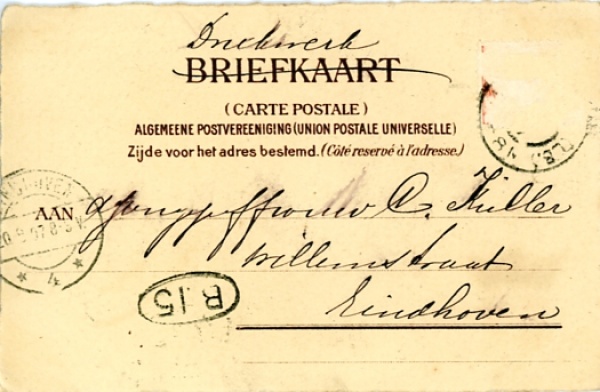 Drukwerk
BRIEFKAART
(CARTE POSTALE)
ALGEMEENE POSTVEREENIGING (UNION POSTALE UNIVERSELLE)
Zijde voor het adres bestemd. (Côté reservé à l'adresse.)
AAN Jongejuffrouw A. Küller
Willemstraat
Eindhoven
B.15